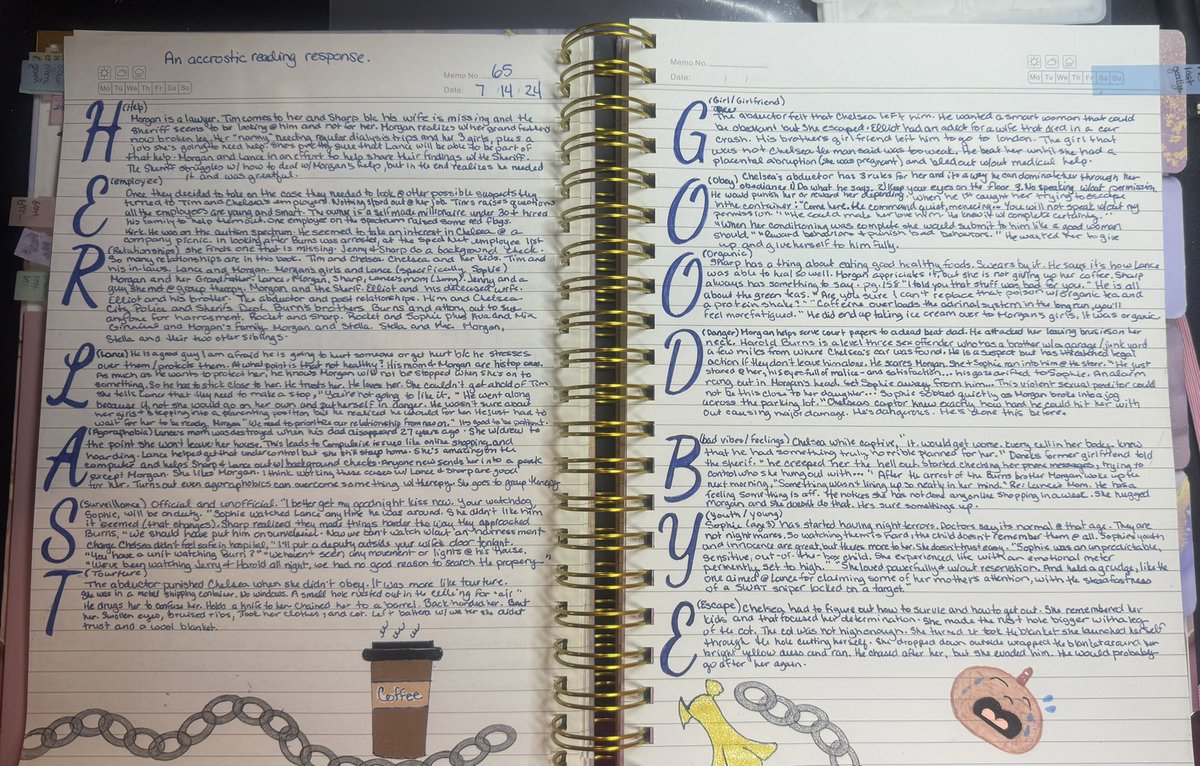 An accrostic reading response.
Memo No. 65
Mo Tu We Th Fr Sa Su
Date: 7 / 14 / 24
H (Help)
Morgan is a lawyer. Tim comes to her and Sharp b/c his wife is missing and the
Sheriff seems to be looking @ him and not for her. Morgan realizes w/her grandfathers
now broken leg, her "nanny" needing regular dialysis trips and the 3 girls, plus a
job she's going to need help. She's pretty sure that Lance will be able to be part of
that help. Morgan and Lance in an effort to help share their findings w/the Sheriff.
The Sheriff struggles w/how to deal w/Morgan's help, but in the end realizes he needed
it and was greatful.
E (employee)
Once they decided to take on the case they had to look @ other possible suspects they
turned to Tim and Chelsea's employers. Nothing stood out @ her job. Tim's raises questions
all the employees are young and smart. The owner is a self made millionaire under 30 + hired
his family to help him out. One employee on the spectrum raised some red flags.
Kirk. He was on the autism spectrum. He seemed to take an interest in Chelsea @ a
company picnic. In looking after Burns was arrested, at the sped hut employee list
R (Relationships) she finds one that is missing. Jenny + Sharp do a background check.
So many relationships are in this book. Tim and Chelsea. Chelsea and her kids. Tim and
his in-laws. Lance and Morgan. Morgan's girls and Lance (specifically, Sophie)
Morgan and her Grandfather. Morgan and Sharp. Lance and his mom (Jenny). Jenny and a
guy she met @ group therapy. Morgan and the Sheriff. Elliot and his deceased wife.
Elliot and his brother. The abductor and past relationships. Him and Chelsea.
City Police and Sheriff's Dept. Burn's brothers. Burns and attorney out to sue
anyone for harassment. Rocket and Sharp. Rocket and Sophie plus Ava and Mia
Gianna and Morgan's family. Morgan and Stella. Stella and Mac. Morgan,
Stella and their two other siblings.
L (Lance) He is a good guy I am afraid he is going to hurt someone or get hurt b/c he stresses
over them / protects them. At what point is that not healthy? His mom + Morgan are his top ones.
As much as he wants to protect her, he knows Morgan will not be stopped when she's on to
something. So he has to stick close to her. He trusts her. He loves her. She couldn't get ahold of Tim
she tells Lance that they need to make a stop, "You're not going to like it." He went along
because if not she would go on her own and put herself in danger. He wasn't sure about
her girls + being in a parenting position but realized he could for her. He just had to
wait for her to be ready. Morgan "We need to prioritize our relationship from now on." It's good to be patient.
A (Agoraphobia) Lance's mom was destroyed when his dad disappeared 27 years ago. She withdrew to
the point she won't leave her house. This leads to compulsive issues like online shopping and
hoarding. Lance helped get that under control but she still stays home. She's amazing on the
computer and helps Sharp + Lance out w/ background checks. Anyone new sends her into a panic
except Morgan. She likes Morgan. I think working these cases w/ Lance + Sharp are good
for her. Turns out even agoraphobics can overcome something w/therapy. She goes to group therapy.
S (Surveillance) Official and unofficial. "I better get my goodnight kiss now. Your watchdog,
Sophie, will be on duty." Sophie watched Lance anytime he was around. She didn't like him
it seemed (that changes). Sharp realized they made things harder the way they approached
Burns, "We should have put him on surveillance. Now we can't watch w/out an harassment
charge. Chelsea didn't feel safe in hospital, "I'll put a deputy outside your wife's door tonight."
"You have a unit watching Burns?" "We haven't seen any movement or lights @ his house."
"We've been watching Jerry + Harold all night, we had no other reason to search the property."
T (Tourture)
The abductor punished Chelsea when she didn't obey. It was more like tourture.
She was in a metal shipping container. No windows. A small hole rusted out in the ceiling for "air".
He drugs her to confuse her. Holds a knife to her. Chained her to a barrel. Back-handed her. Beat
her. Swollen eyes, bruised ribs. Took her clothes, and cot. Left her there w/water she didn't
trust and a wool blanket.
Coffee
Memo No.
Mo Tu We Th Fr Sa Su
Date: / /
G (Girl/Girlfriend)
The abductor felt that Chelsea left him. He wanted a smart woman that could
be obediant but she escaped. Elliot had an addict for a wife that died in a car
crash. His brothers girlfriend left him to go to London. The girl that
was not Chelsea the man said was too weak. He beat her until she had a
placental abruption (she was pregnant) and bled out w/out medical help.
O (Obey) Chelsea's abductor has 3 rules for her and it's a way he can dominate her through her
obediance. 1) Do what he says. 2) Keep your eyes on the floor 3. No speaking w/out permission.
He would punish her or reward her depending. When he caught her trying to escape
in the container: "Come here. He commanded quiet, menacing. You will not speak w/out my
permission." "He could break her w/ his will. He knew it w/ complete certainty."
"When her conditioning was complete she would submit to him like a good woman
should." "Reward behaviors + punish bad behaviors." He wanted her to give
up and give herself to him fully.
O (Organic)
Sharp has a thing about eating good healthy foods. Swears by it. He says it's how Lance
was able to heal so well. Morgan appriciates it but she is not giving up her coffee. Sharp
always has something to say. pg 157 "I told you that stuff was bad for you." He is all
about the green teas. "Are you sure I can't replace that poison w/ organic tea and
a protein shake?" "Caffeine overloads the adrenal system. In the long run you'll
feel more fatigued." He did end up taking ice cream over to Morgan's girls. It was organic
D (Danger) Morgan helps serve court papers to a dead beat dad. He attacked her leaving bruises on her
neck. Harold Burns is a level three sex offender who has a brother w/ a garage/junk yard
a few miles from where Chelsea's car was found. He is a suspect but has threatened legal
action if they don't leave him alone. He scares Morgan. She + Sophie ran into him @ the store. "He just
stared @ her, his eyes full of malice - and satisfaction... his gaze drifted to Sophie. An alarm
rang out in Morgan's head. Get Sophie away from him... This violent sexual predator could
not be this close to her daughter." Sophie sobbed quietly as Morgan broke into a jog
across the parking lot. "Chelsea's captor knew exactly how hard he could hit her with
out causing major damage. He's dangerous. He's done this before.
B (Bad vibes/feelings) Chelsea while captive, "It would get worse. Every cell in her body knew
that he had something more horrible planned for her." Dante's former girlfriend told
the sheriff "he creeped her the hell out. Started checking her messages, trying to
control who she hung out with..." After the arrest of the Burns brother Morgan woke up the
next morning, "Something wasn't lining up so neatly in her mind." Re: Lance's mom. He has a
feeling something is off. He noticed she has not done any online shopping in a week. She hugged
Morgan and she doesn't do that. He's sure something's up.
Y (Youth / young)
Sophie (age 3) has started having night terrors. Doctors say it's normal @ that age. They are
not nightmares. So watching them is hard, the child doesn't remember them @ all. Sophie's youth
and innocence are great, but there's more to her. She doesn't trust easy. "Sophie was an unpredictable,
sensitive, out-of-the-box child. She experienced life with her emotional meter
permenently set to high." "She loved powerfully + w/out reservation. And held a grudge, like the
one aimed @ Lance for claiming some of her mother's attention, with the steadfastness
of a SWAT sniper locked on a target."
E (Escape) Chelsea had to figure out how to survive and how to get out. She remembered her
kids and that focused her determination. She made the rust hole bigger with a leg
of the cot. The cot was not high enough. She turned it took the blanket she launched herself
through the hole cutting herself. She dropped down outside wrapped the blanket around her
bright yellow dress and ran. He chased after her, but she evaded him. He would probably
go after her again.
B